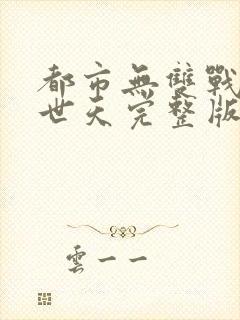 都市無雙戰
世天完整版
雲一一